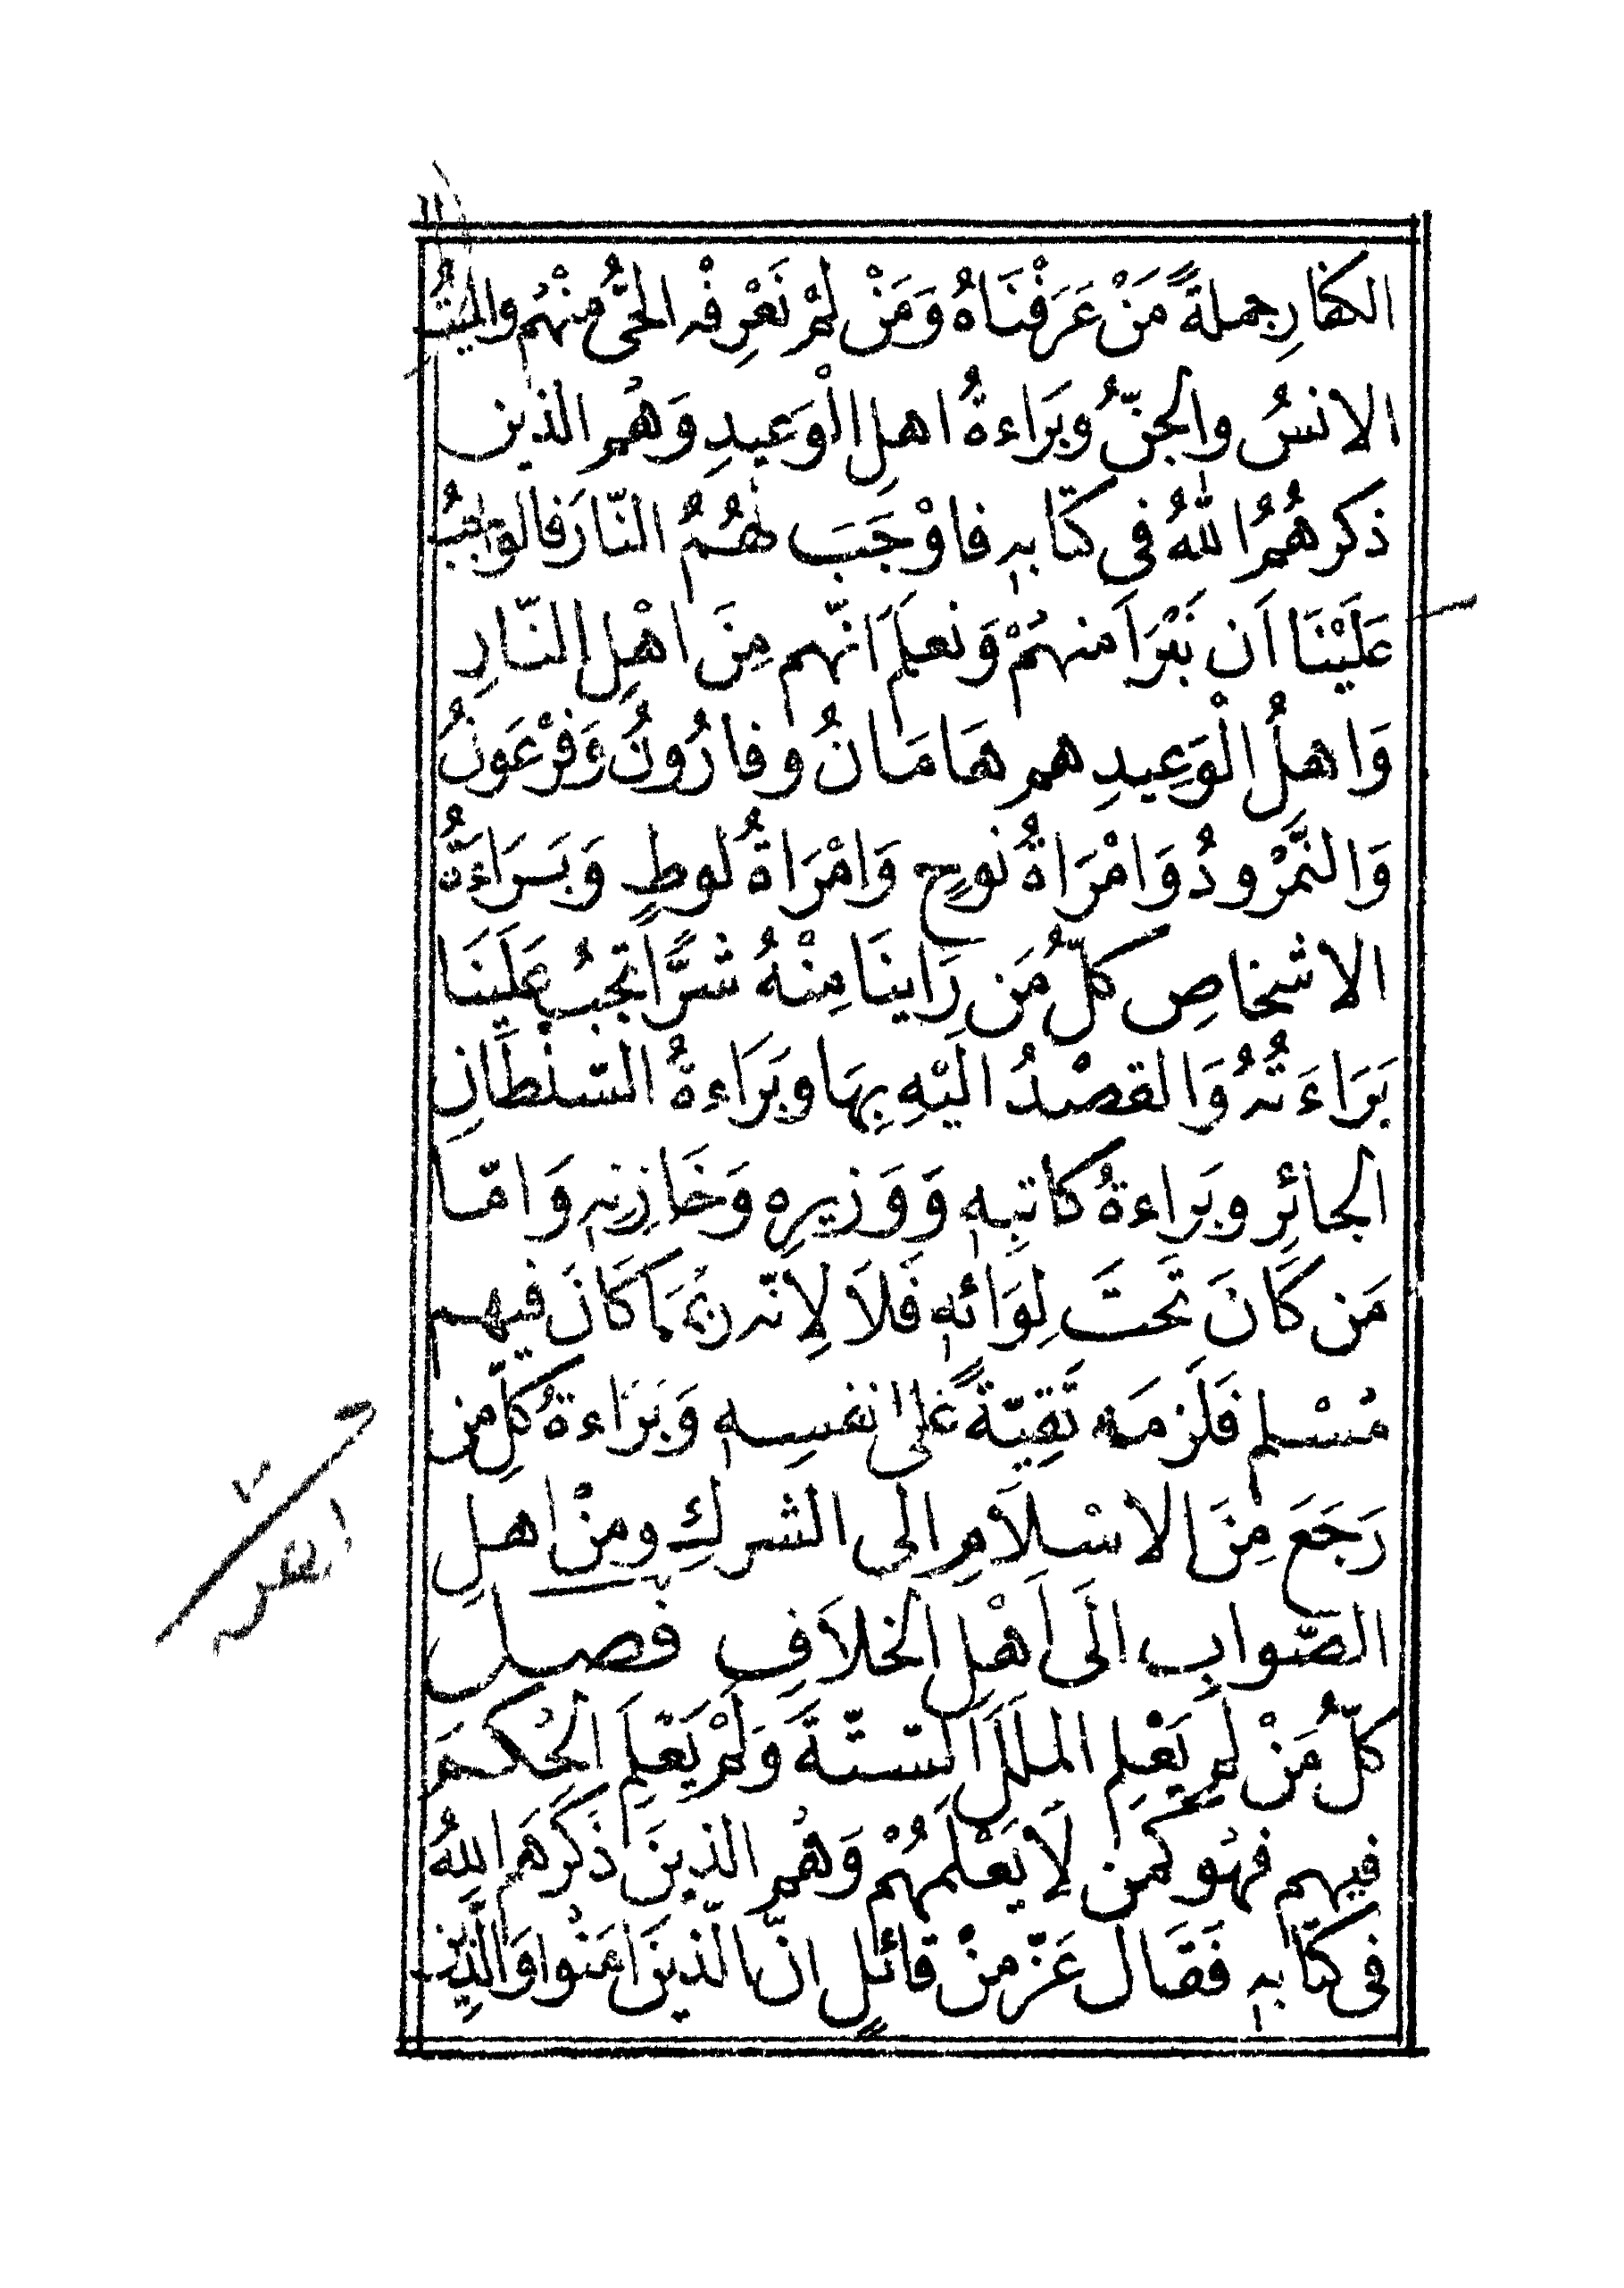 الكفارِ جملةً مَنْ عَرَفْنَاهُ وَمَنْ لمْ نَعْرِفْه الحَىُّ منْهُم والميّتُ
الانسُ والجنّ ُ وبَراءةُ اهلِ الْوَعيدِ وَهُم الذين
ذكرهُمُ اللهُ فى كتابهِ فاوْجَبَ لهُمُ النّارَ فالواجبُ
عَلَيْنَا اَن نَبْرَاَ منهُمْ وَنعلمَ اَنّهم مِنَ اهْلِ النّارِ
وَاهلُ الْوَعِيدِ هم هَامَانُ وقارُونُ وَفرْعَونُ
وَالنَّمْرُودُ وَامْرَاةُ نُوحٍ وَامْرَاةُ لوطٍ وَبَرَاءَةُ
الاشخاصِ كلُّ مَن رَاينَا مِنْهُ شرًّا تجبُ عَلَينَا
بَرَاءَتُهُ وَالقصْدُ اليْهِ بِهَا وبَرَاءةُ السّلْطَانِ
الجائِرِ وبَراءةُ كاتبِهِ وَوَزيرِهِ وَخَازِنهِ وَامّا
مَن كَانَ تَحتَ لِوَائهِ فَلاَ لاِنّه رُبمَا كَانَ فيهم
مُسْلم فَلَزمَه تَقِيّةً عَلى نفسِهِ وَبَرَاءةُ كلِّ من
رَجَعَ مِنَ الاسْلاَمِ الَى الشركِ ومِنْ اهلِ
الصّوابِ الَى اَهْلِ الخلاَفِ فصل
كلُّ مَنْ لم يَعْلمِ المللَ السّتّةَ وَلمْ يَعْلمِ الحُكمَ
فيهم فهُو كمن لاَ يَعْلَمُهُمْ وَهُم الذينَ ذَكرَهُم اللهُ
فى كتَابهِ فَقَال عَزّ منْ قائلٍ انّ الّذينَ امَنُوا وَالّذِين